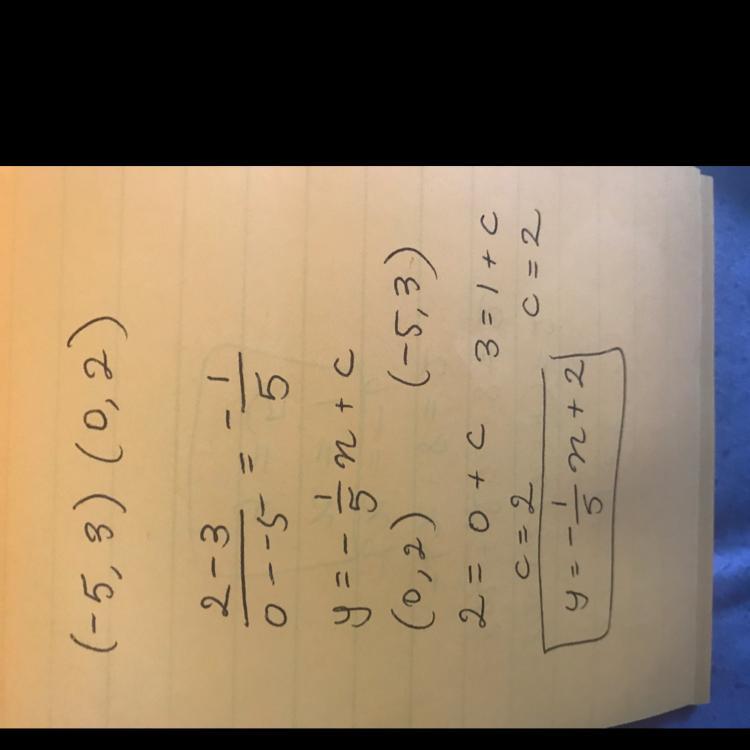 (-5, 3) (0, 2)
2-3/0--5 = -1/5
y = -1/5 x + c
(0, 2) (-5, 3)
2 = 0 + c 3 = 1 + c
c = 2 c = 2
y = -1/5 x + 2